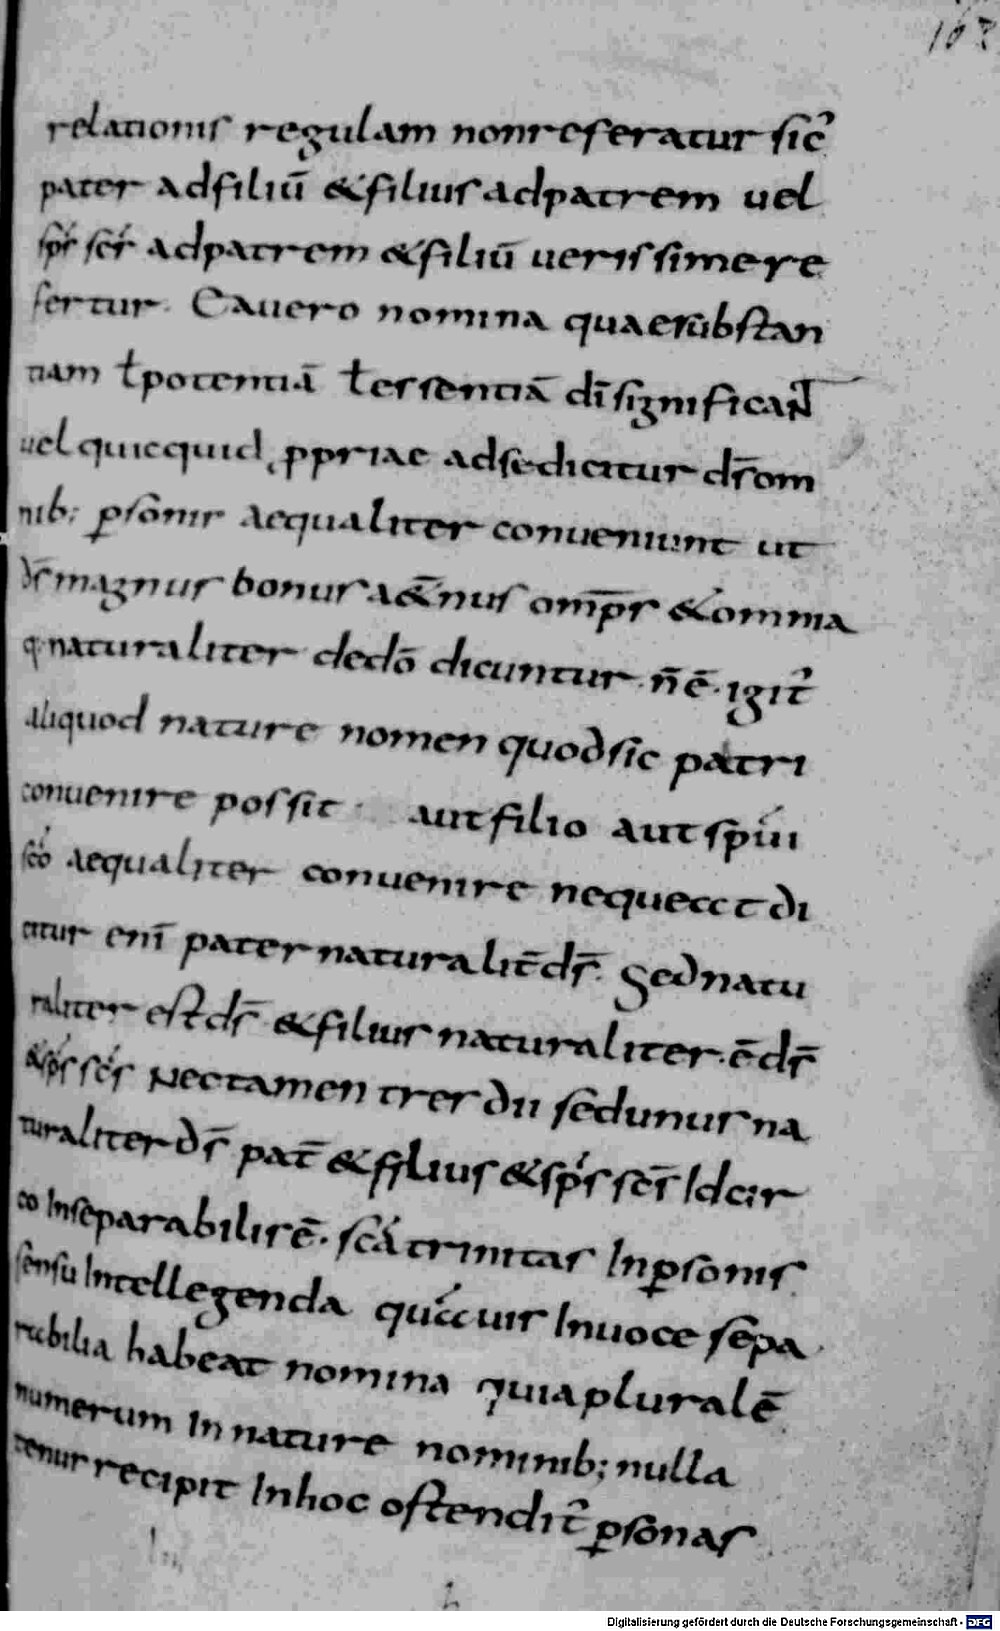 163
relationis regulam nonreferatur sic̉
pater adfiliū &filius adpatrem uel
sp̄s sc̄s adpatrem &filiū uerissimere
fertur. Eauero nomina quaesubstan
tiam ł potentiā ł essentiā dī significant
uel quicquid ꝓpriae adsedicitur ds̄ om
nib; ꝑsonis aequaliter conueniunt ut
ds̄ magnus bonus a&̄nus omp̄s &omnia
q· naturaliter dedō dicuntur. n̄ē· igit̉
aliquod nature nomen quodsic patri
conuenire possit aut filio aut sp̄ui
sc̄o aequaliter conuenire nequeat di
citur enī pater naturalit̄ ds̄. Sednatu
raliter est ds̄ &filius naturaliter· ē ds̄
&sp̄s sc̄s Nectamen tres dii sedunus na
turaliter ds̄ pat̄ &filius &sp̄s sc̄s Idcir
co Inseparabilis ē· sc̄a trinitas Inꝑsonis
sensu Intellegenda quauis Inuoce sepa
rabilia habeat nomina quia pluralē
numerum In nature nominib; nulla
tenus recipit Inhoc ostendit̉ ꝑsonas
Digitalisierung gefördert durch die Deutsche Forschungsgemeinschaft - DFG